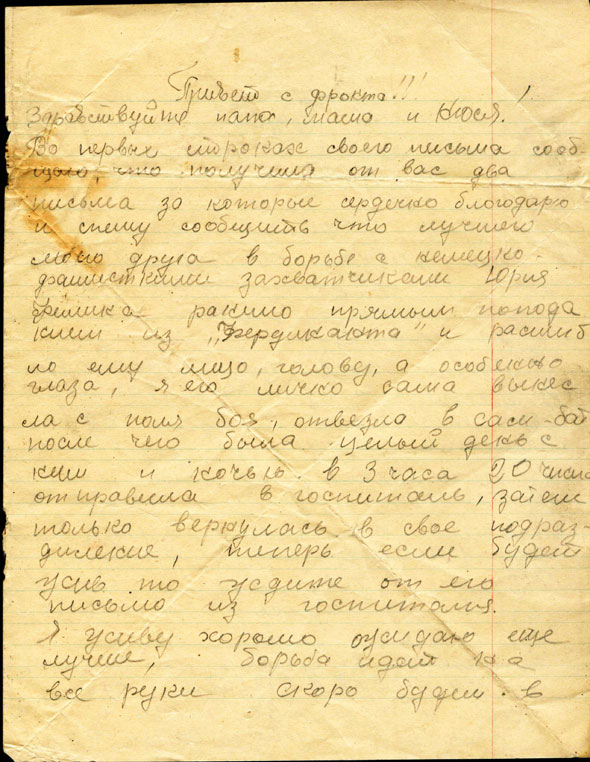 Привет с фронта!!!
Здравствуйте папа, мама и Нюся!
Во первых строках своего письма сооб-
щаю, что получила от вас два
письма за которые сердечно благодарю
и спешу сообщить что лучшего
моего друга в борьбе с немецко-
фашисткими захватчиками Юрия
ранило прямым попода
нием из „Фердинанта" и расшиб
ло ему лицо, голову, а особенно
глаза, я его лично сама вынес
ла с поля боя, отвезла в сан-бат
после чего была целый день с
ним и ночью в 3 часа 20 числа
отправила в госпиталь, затем
только вернулась в свое подраз-
диление, теперь если будет
то от его
письмо из госпиталя.
Я хорошо ожидаю еще
лучше, борьба идет на
все руки скоро будем в